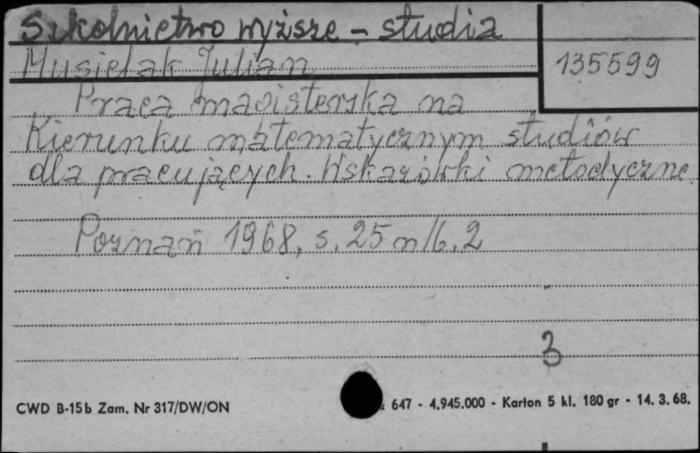 Szkolnictwo wyższe - studia
Musielak Julian
135599
Praca magisterska na
Kierunku matematycznym studiów
dla pracujących. Wskazówki metodyczne
Poznań 1968, s. 25 nlb. 2
3
CWD B-15b Zam. Nr 317/DW/ON
647 - 4.945.000 - Karton 5 kl. 180 gr - 14. 3. 68.